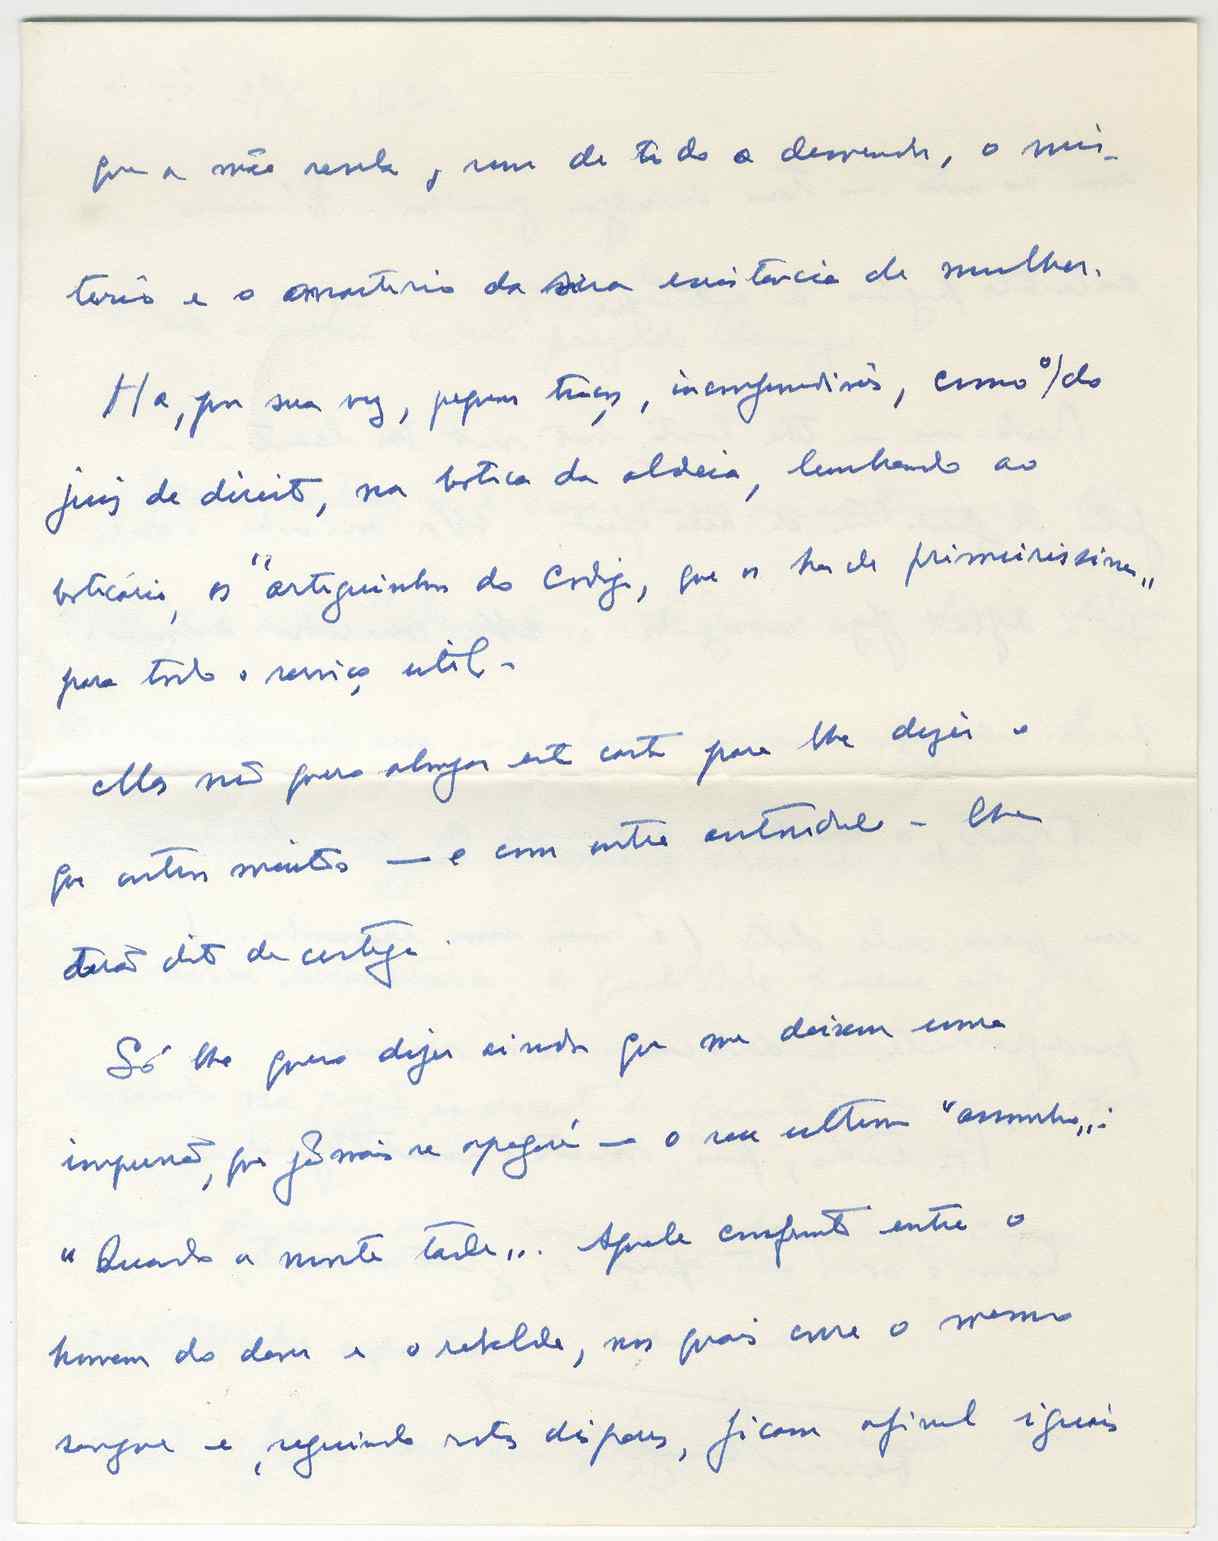 que a mãe revela, sem de todo a desvendar, o mis-
terio e o martirio da sua existencia de mulher.
Ha, por sua vez, pequenos traços, inconfundiveis, como o / do
juiz de direito, na botica da aldeia, lembrando ao
boticário, os "artiguinhos do Codigo, que os ha de primeirissima"
para todo o serviço util.
Mas não quero alongar esta carta para lhe dizer o
que outros muitos — e com outra autoridade — lhe
terão dito de certeza.
Só lhe quero dizer ainda que me deixou uma
impressão, que jàmais se apagará — o seu ultimo "assombro":
"Quando a morte tarda". Aquele confronto entre o
homem do dever e o rebelde, nos quais corre o mesmo
sangue e, seguindo rotas dispares, ficam afinal iguais